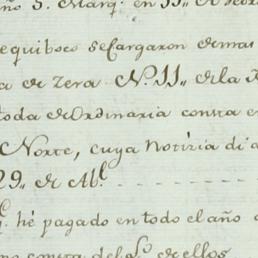 ño S. Marq.^s en 11,, de
equiboco se Cargaron de mas
a de Zera N.º 11,, de la
toda de Ordinaria consta e
Norte, cuya Notizia di a
29,, de Ab.^l
hé pagado en todo el año
no consta del de ellos